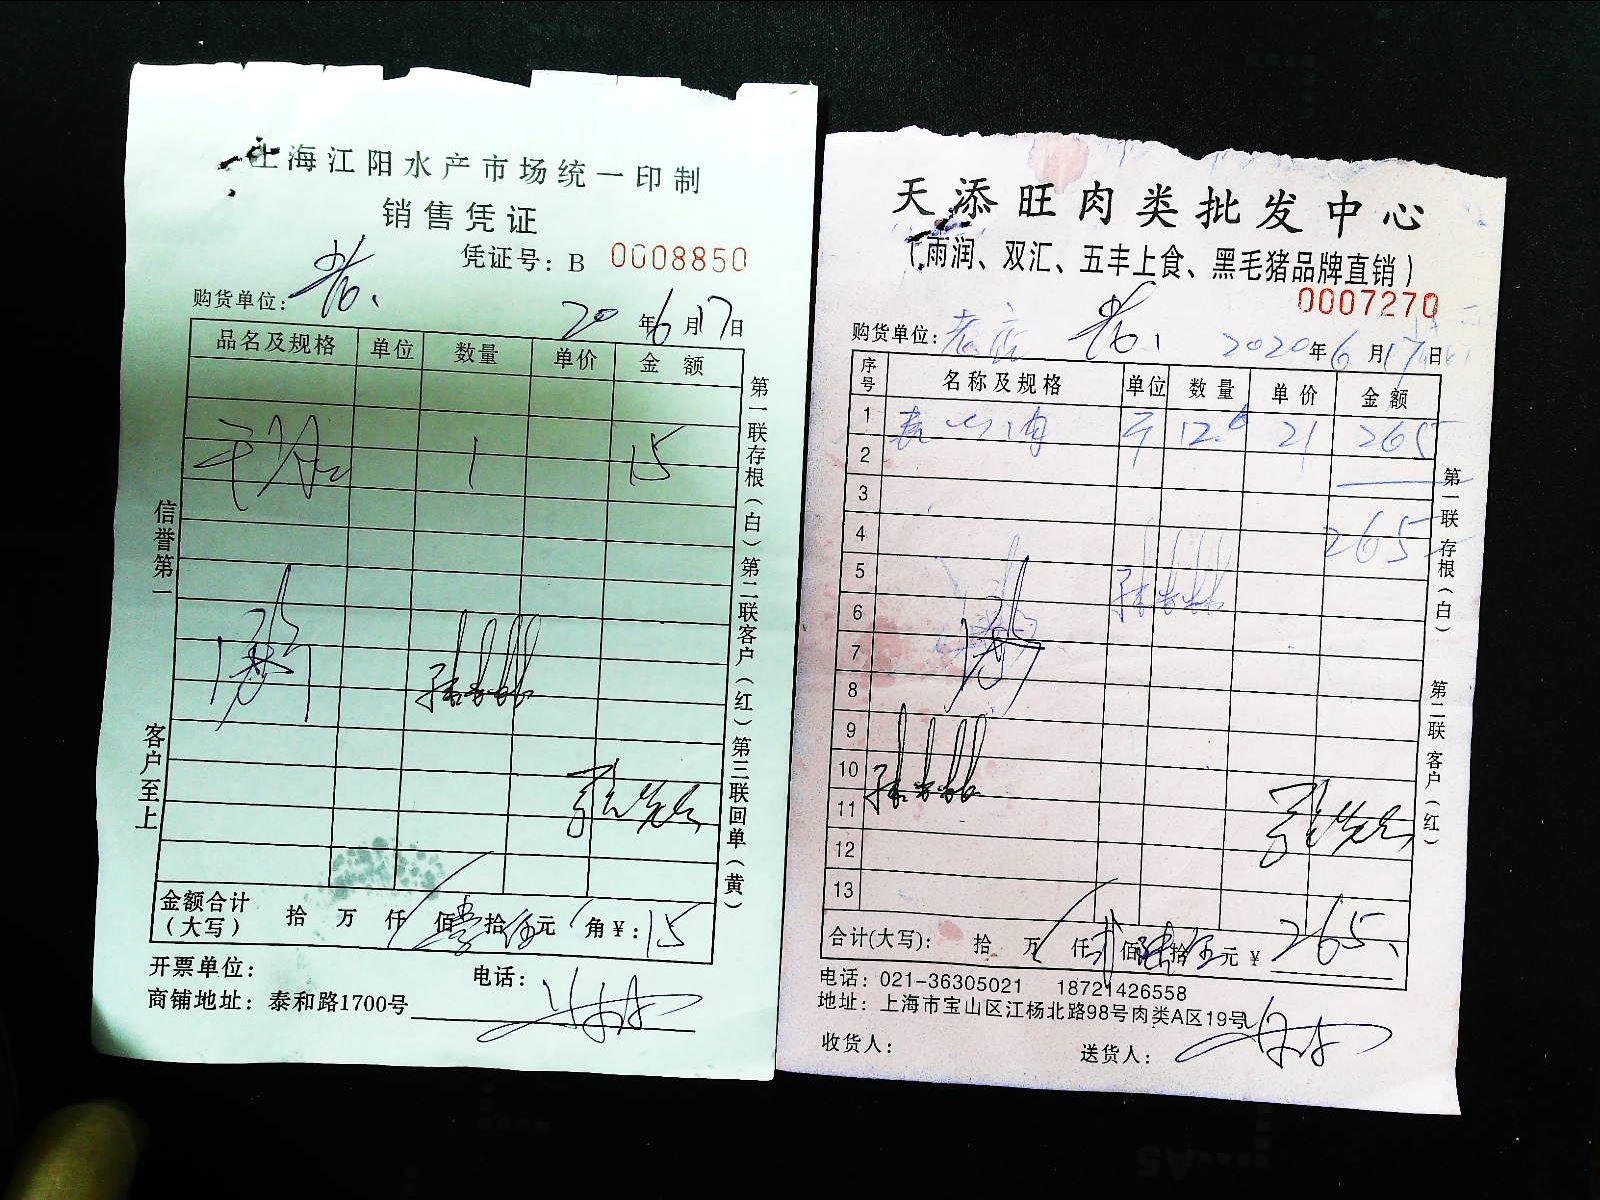 上海江阳水产市场统一印制
销售凭证
凭证号：B 0008850
购货单位：
20年6月17日
品名及规格 单位 数量 单价 金额
1 15
信誉第一
客户至上
第一联存根（白）第二联客户（红）第三联回单（黄）
金额合计（大写） 拾 万 仟 佰壹拾伍元 角￥：15
开票单位： 电话：
商铺地址：泰和路1700号
天添旺肉类批发中心
（雨润、双汇、五丰上食、黑毛猪品牌直销）
0007270
购货单位：老店
2020年6月17日
序号 名称及规格 单位 数量 单价 金额
1 斤 12.6 21 265
2
3
4 265
5
6
7
8
9
10
11
12
13
第一联 存根（白） 第二联 客户（红）
合计(大写)： 拾 万 仟贰佰陆拾伍元￥265
电话：021-36305021 18721426558
地址：上海市宝山区江杨北路98号肉类A区19号
收货人： 送货人：